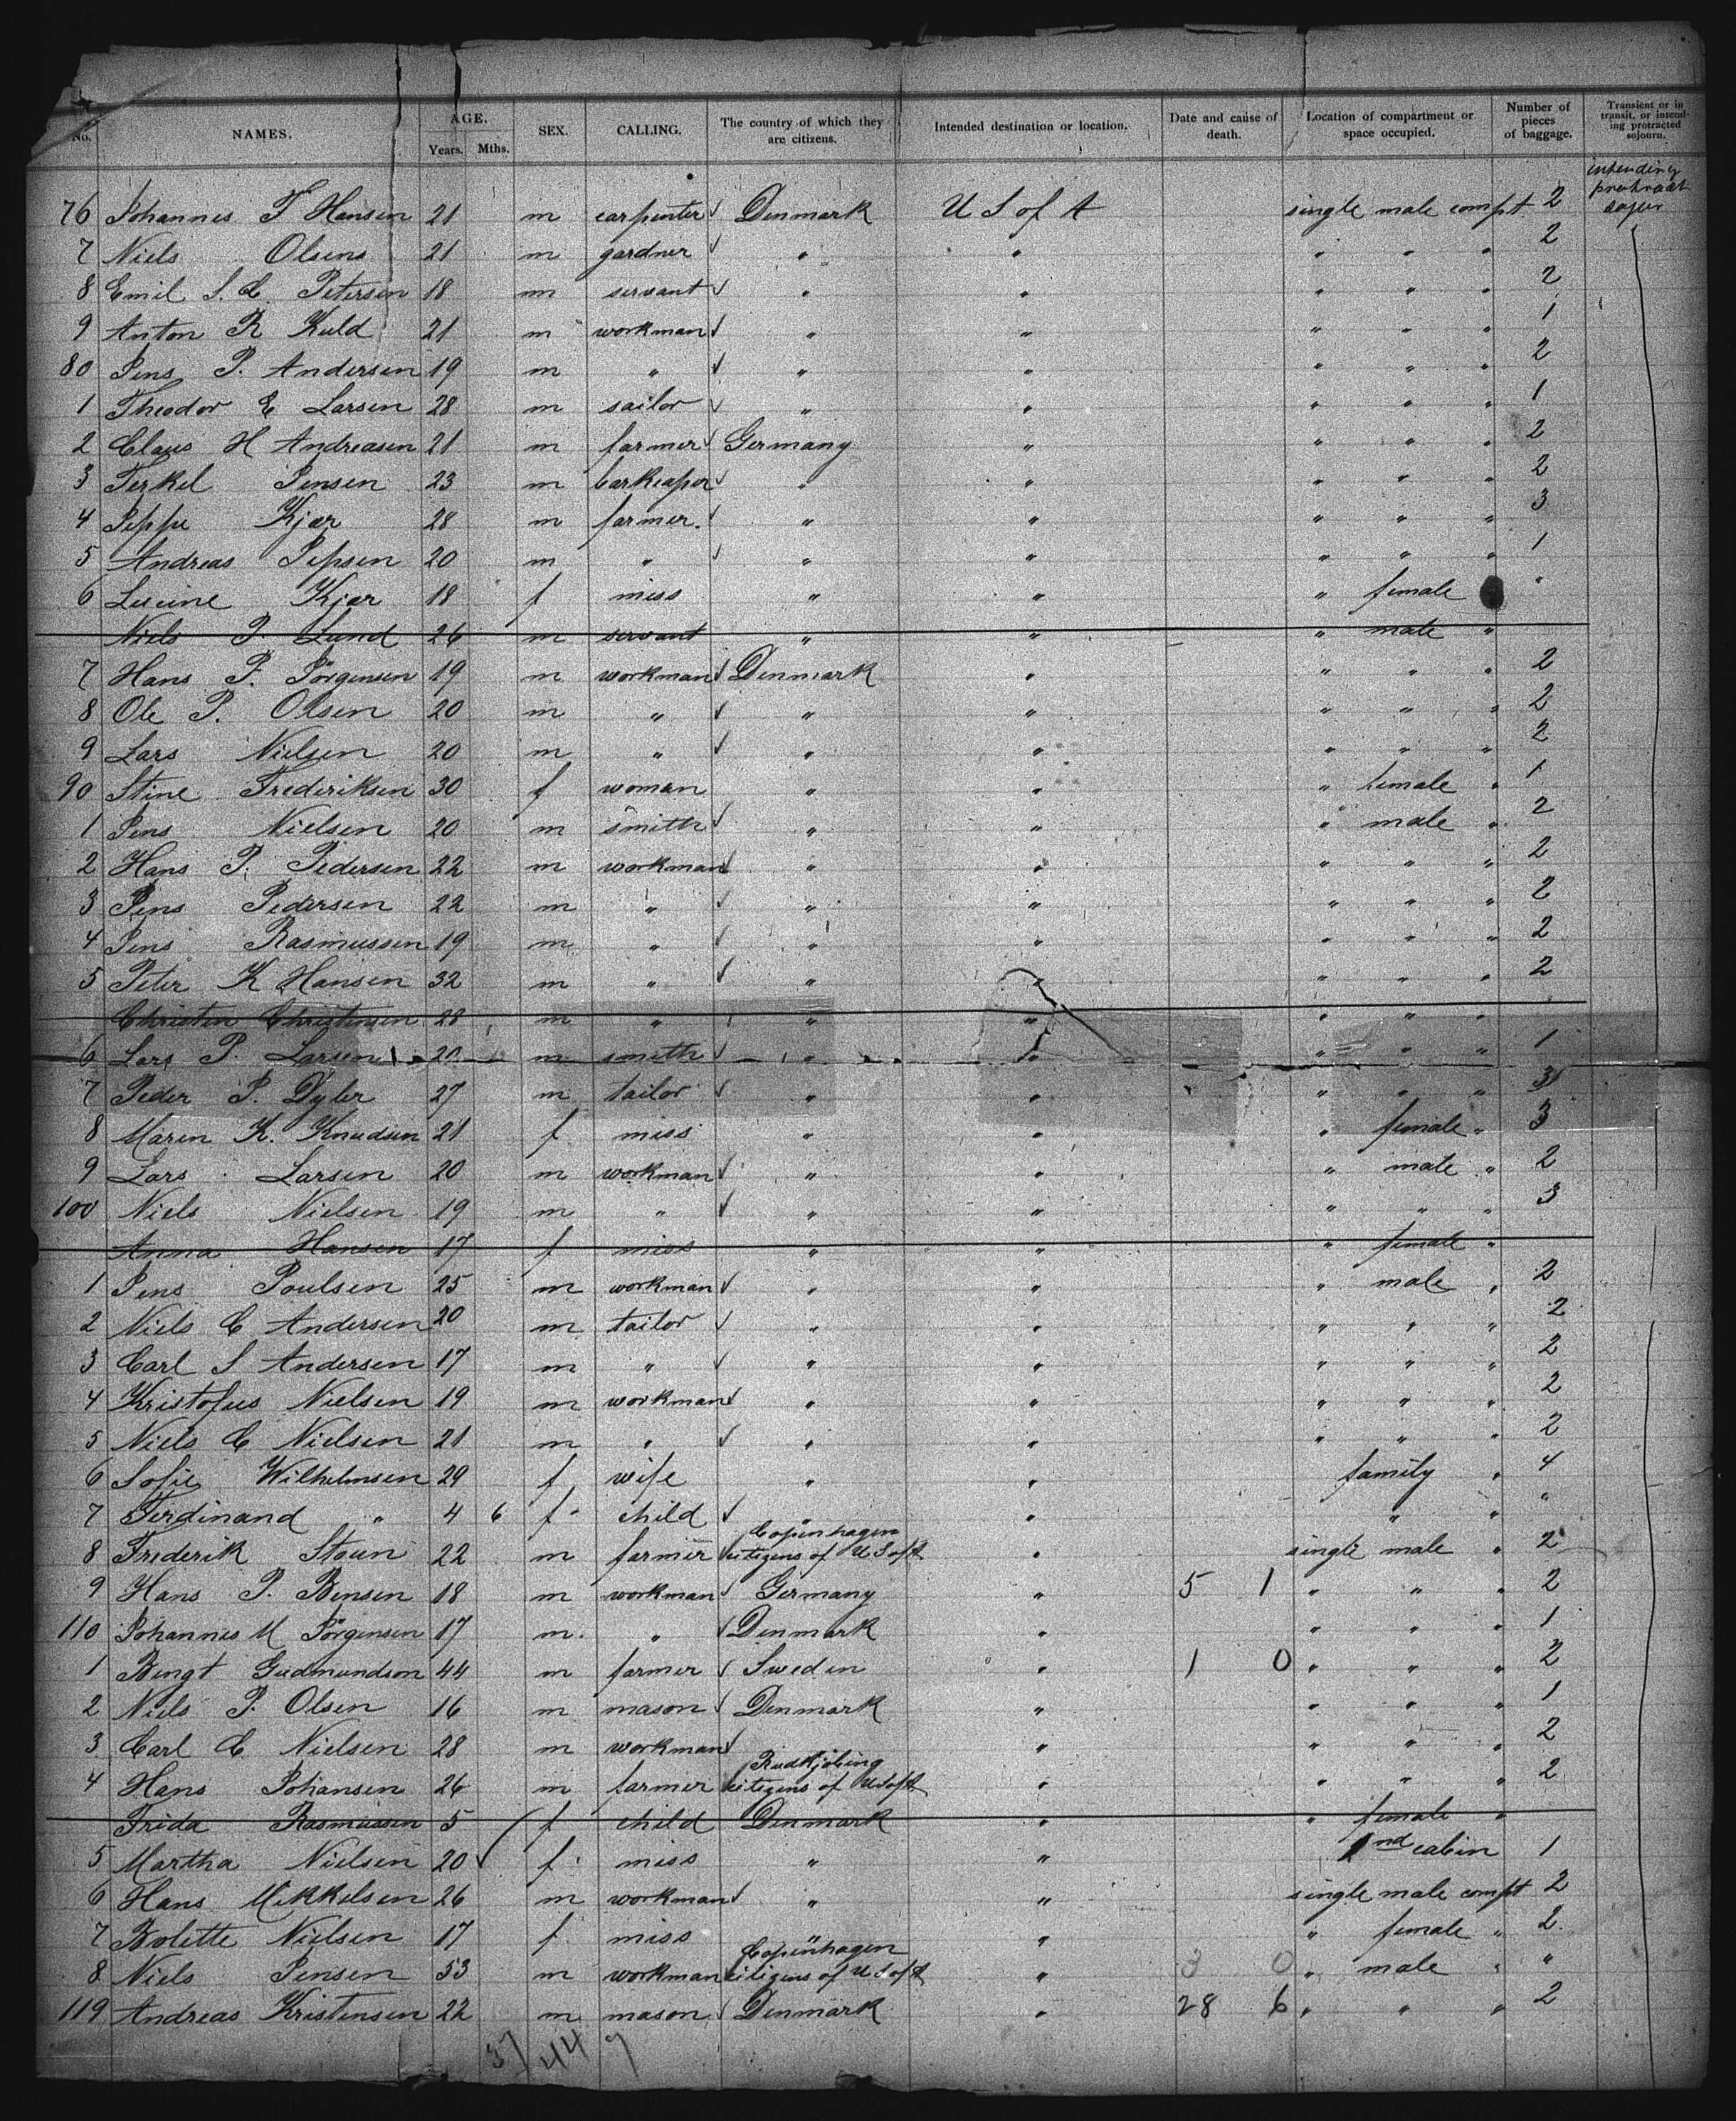 No. NAMES. AGE. Years. Mths. SEX. CALLING. The country of which they are citizens. Intended destination or location. Date and cause of death. Location of compartment or space occupied. Number of pieces of baggage. Transient or in transit, or intending protracted sojourn.
intending
protract
76 Johannes T Hansen 21 m carpenter Denmark U S of A single male compt 2 sojur
7 Niels Olsens 21 m gardner " " " " " 2
8 Emil S. C. Petersen 18 m servant " " " " " 2
9 Anton R Kuld 21 m workman " " " " " 1
80 Jens P. Andersen 19 m " " " " " " 2
1 Theodor E Larsen 28 m sailor " " " " " 1
2 Claus H Andreasen 21 m farmer Germany " " " " 2
3 Terkel Jensen 23 m barkeaper " " " " " 2
4 Jeppe Kjær 28 m farmer. " " " " " 3
5 Andreas Jepsen 20 m " " " " " " 1
6 Lucine Kjær 18 f miss " " " female "
Niels P. Lund 26 m servant " " " male "
7 Hans P. Jörgensen 19 m workman Denmark " " " " 2
8 Ole P. Olsen 20 m " " " " " " 2
9 Lars Nielsen 20 m " " " " " " 2
90 Stine Frederiksen 30 f woman " " " female " 1
1 Jens Nielsen 20 m smith " " " male " 2
2 Hans P. Pedersen 22 m workman " " " " " 2
3 Jens Pedersen 22 m " " " " " " 2
4 Jens Rasmussen 19 m " " " " " " 2
5 Peter K Hansen 32 m " " " " " " 2
Christen Christensen 28 m " " " " " "
6 Lars P. Larsen 20 m smith " " " " " 1
7 Peder P. Dyler 27 m tailor " " " " " 3
8 Maren K. Knudsen 21 f miss " " " female " 3
9 Lars Larsen 20 m workman " " " male " 2
100 Niels Nielsen 19 m " " " " " " 3
Anna Hansen 17 f miss " " " female "
1 Jens Poulsen 25 m workman " " " male " 2
2 Niels C Andersen 20 m tailor " " " " " 2
3 Carl S Andersen 17 m " " " " " " 2
4 Kristofus Nielsen 19 m workman " " " " " 2
5 Niels C Nielsen 21 m " " " " " " 2
6 Sofie Wilhelmsen 29 f wife " " family " 4
7 Ferdinand " 4 6 f child " " " " "
Copenhagen
8 Frederik Stoun 22 m farmer citizens of U S of A " single male " 2
9 Hans P. Bensen 18 m workman Germany " 5 1 " " " 2
110 Johannes M Jörgensen 17 m " Denmark " " " " 1
1 Bengt Gudmundson 44 m farmer Sweden " 1 0 " " " 2
2 Niels P. Olsen 16 m mason Denmark " " " " 1
3 Carl C. Nielsen 28 m workman " " " " " 2
Rudkjöbing
4 Hans Johansen 26 m farmer citizens of U S of A " " " " 2
Frida Rasmussen 5 f child Denmark " " female "
5 Martha Nielsen 20 f miss " " nd cabin 1
6 Hans Mikkelsen 26 m workman " " single male compt 2
7 Bolette Nielsen 17 f miss " " " female " 2
Copenhagen
8 Niels Jensen 53 m workman citizens of U S of A " 3 0 " male " "
119 Andreas Kristensen 22 m mason Denmark " 28 6 " " " 2
37/44 7